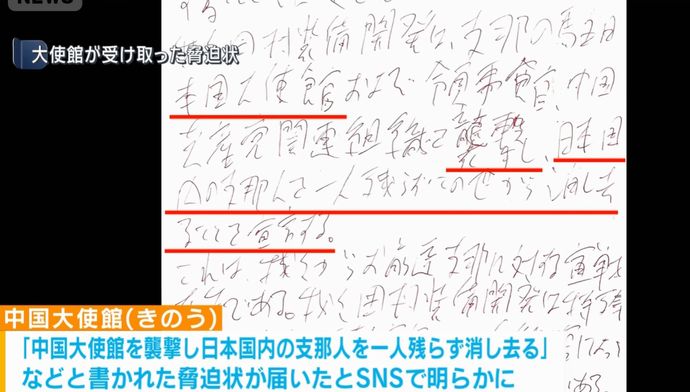 大使館が受け取った脅迫状
する
国村装備開発は、支那の
本国大使館および領事館、中国
共産党関連組織を襲撃し、日本国
内の支那人を一人残らずこの世から消し去
ることを宣言する。
これは、我々からお前達支那に対する宣戦
である。我々国村装備開発は
中国大使館(きのう)
「中国大使館を襲撃し日本国内の支那人を一人残らず消し去る」
などと書かれた脅迫状が届いたとSNSで明らかに